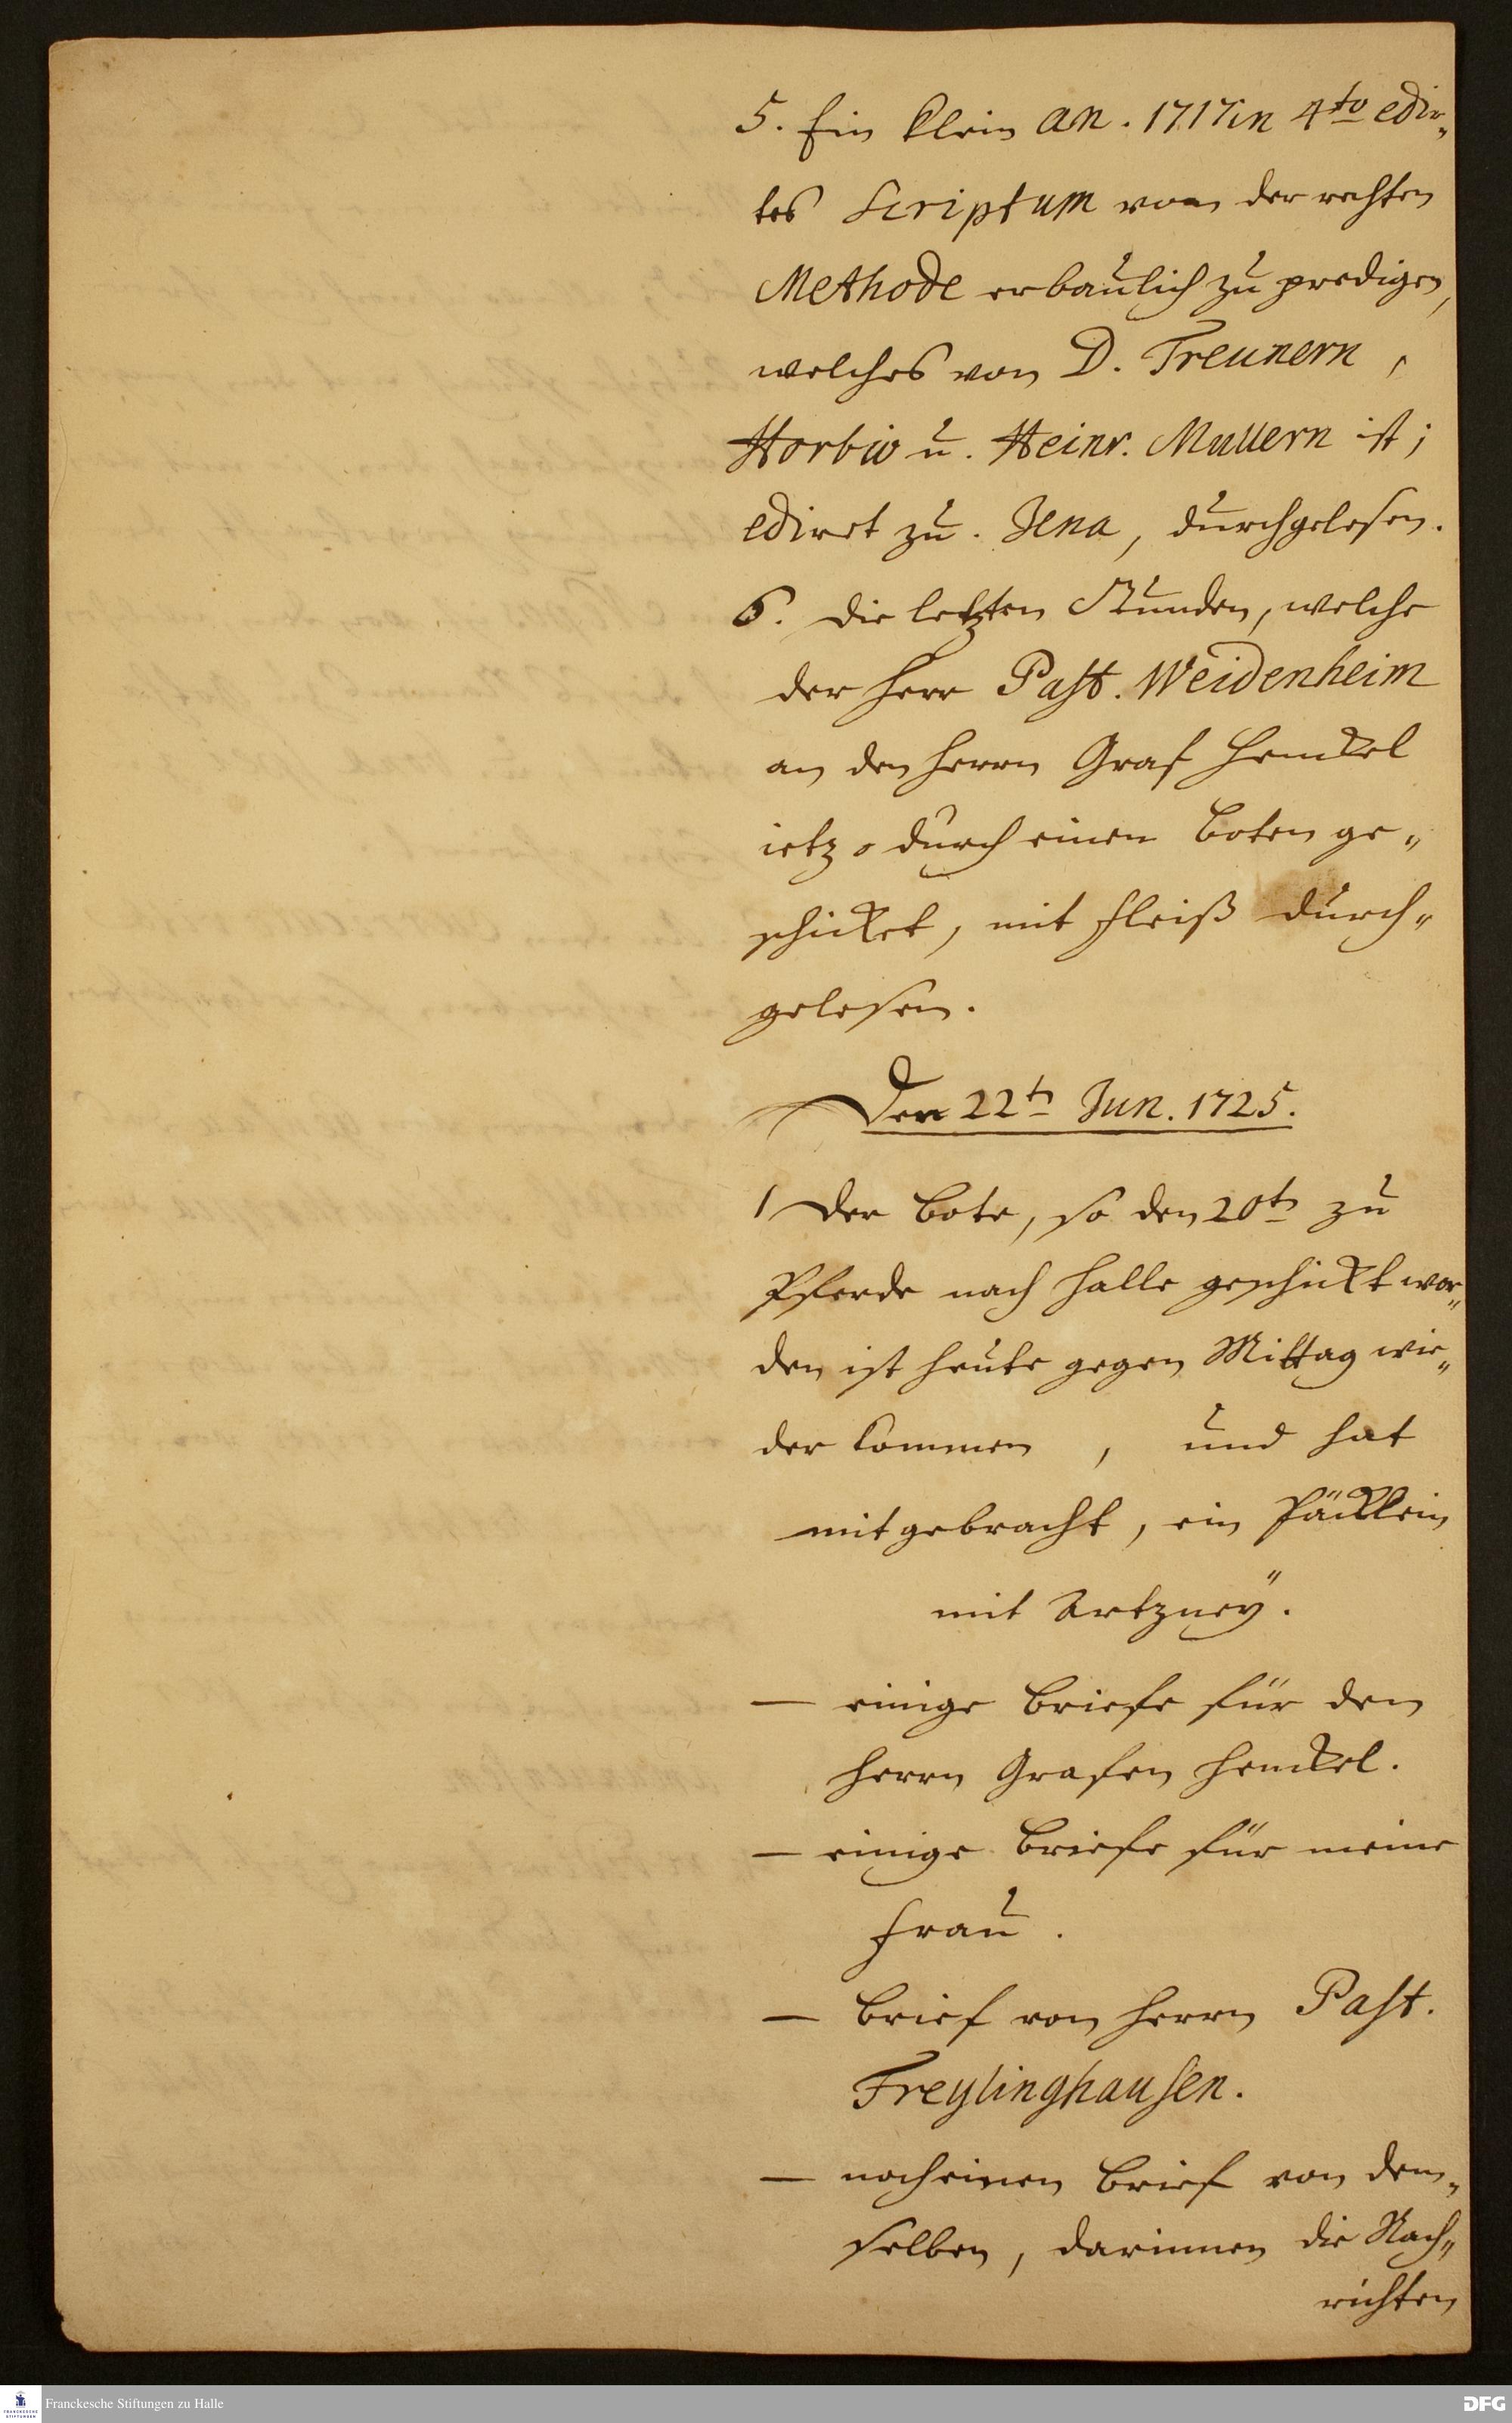 5. Ein klein an. 1717 in 4to edir„
tes Scriptum von der rechten
Methode erbaulich zu predigen,
welches von D. Treunern,
Horbio u. Heinr. Mullern ist;
ediret zu. Jena, durchgelesen.
6. die letzten Stunden, welche
der Herr Past. Weidenheim
an den Herrn Graf Henckel
ietzo durch einen Boten ge„
schicket, mit Fleiß durch„
gelesen.
Den 22t. Jun. 1725.
1 Der Bote, so den 20t. zu
Pferde nach Halle geschickt wor„
den ist heute gegen Mittag wie„
der kommen, und hat
mitgebracht, ein Päcklein
mit Artzney.
— einige Briefe für den
Herrn Grafen Henckel.
— einige Briefe für meine
Frau.
— Brief von Herrn Past.
Freylinghausen.
— noch einen Brief von dem„
selben, darinnen die Nach„
richten
Franckesche Stiftungen zu Halle
FRANCKESCHE
STIFTUNGEN
DFG